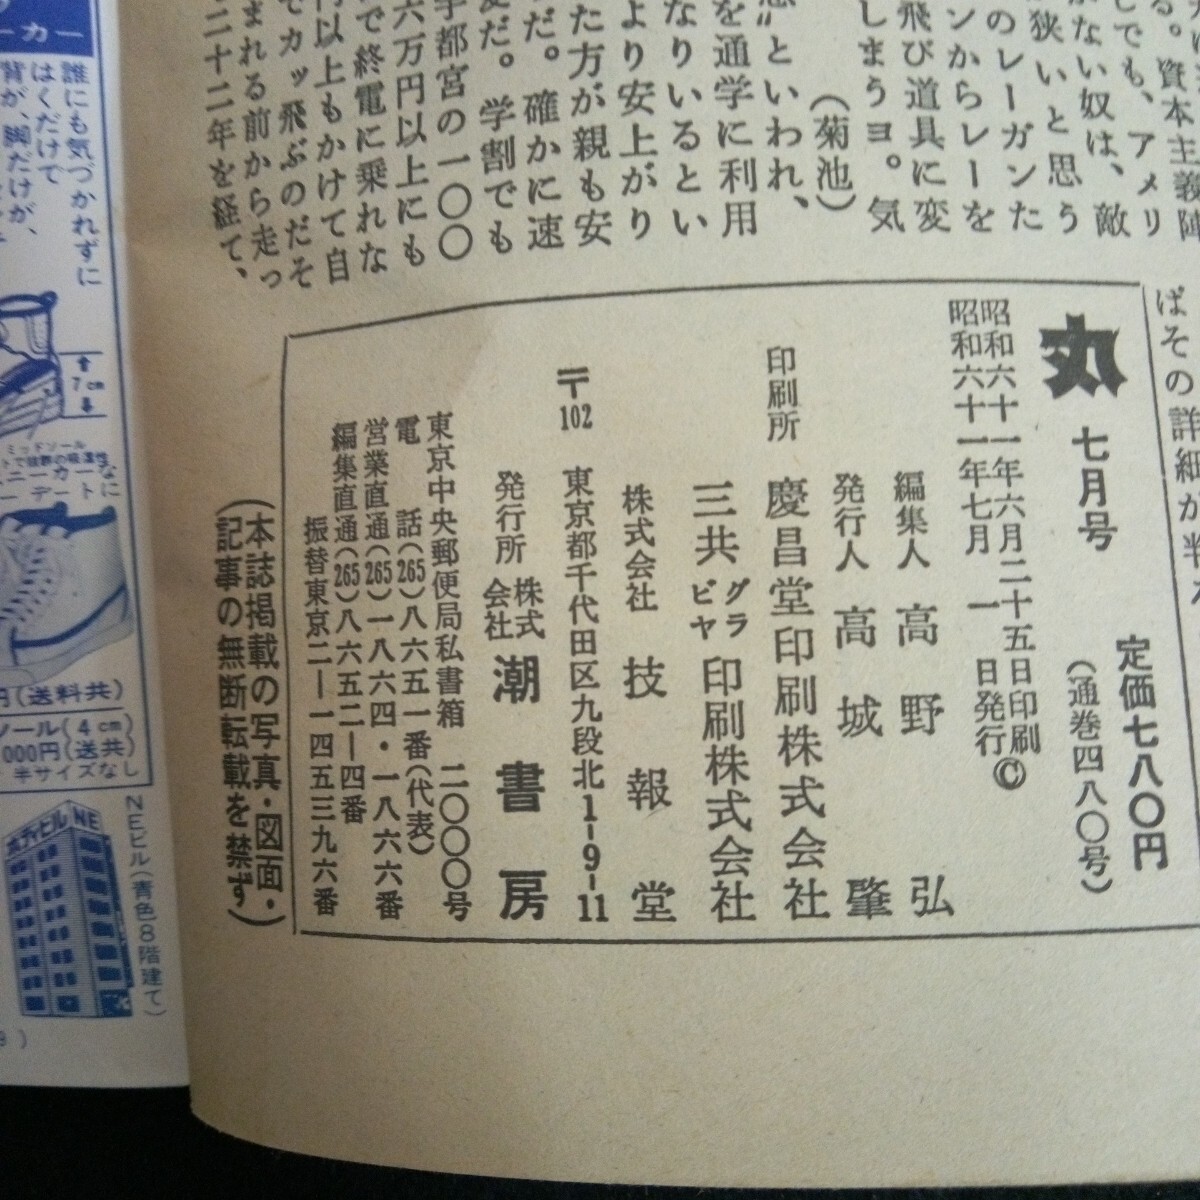 る。資本主義陣
しでも、アメリ
がない奴は、敵
が狭いと思う
のレーガンた
ンからレーを
飛び道具に変
しまうヨ。気
（菊池）
といわれ、
を通学に利用
なりいるとい
より安上がり
た方が親も安
だ。確かに速
だ。学割でも
宇都宮の一〇〇
六万円以上にも
で終電に乗れな
円以上もかけて自
でカッ飛ぶのだそ
まれる前から走っ
二十二年を経て、
ばその詳細が判
丸 七月号 定価七八〇円
（通巻四八〇号）
昭和六十一年六月二十五日印刷
昭和六十一年七月 一 日発行 ©
編集人 高野 弘
発行人 高城 肇
印刷所 慶昌堂印刷株式会社
三共グラビヤ印刷株式会社
株式会社 技報堂
〒102 東京都千代田区九段北1-9-11
発行所 株式会社 潮書房
東京中央郵便局私書箱 二〇〇〇号
電話（265）八六五一番（代表）
営業直通（265）一八六四・一八六六番
編集直通（265）八六五二―四番
振替東京二―一四五三九六番
（本誌掲載の写真・図面・
記事の無断転載を禁ず）
ーカー
誰にも気づかれずに
はくだけで
背が、脚だけが、
7cm
ミッドソール
円（送料共）
ソール（4cm）
000円（送共）
半サイズなし
ボディビル NE
NEビル（青色8階建て）
9）